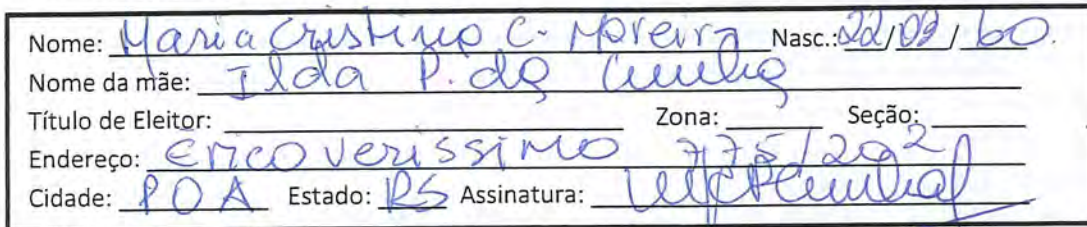 Nome: Maria Cristina C. Moreira Nasc.: 22/02/60.
Nome da mãe: Ilda P. da Cunha
Título de Eleitor: Zona: Seção:
Endereço: Erico Verissimo 775/202
Cidade: POA Estado: RS Assinatura: